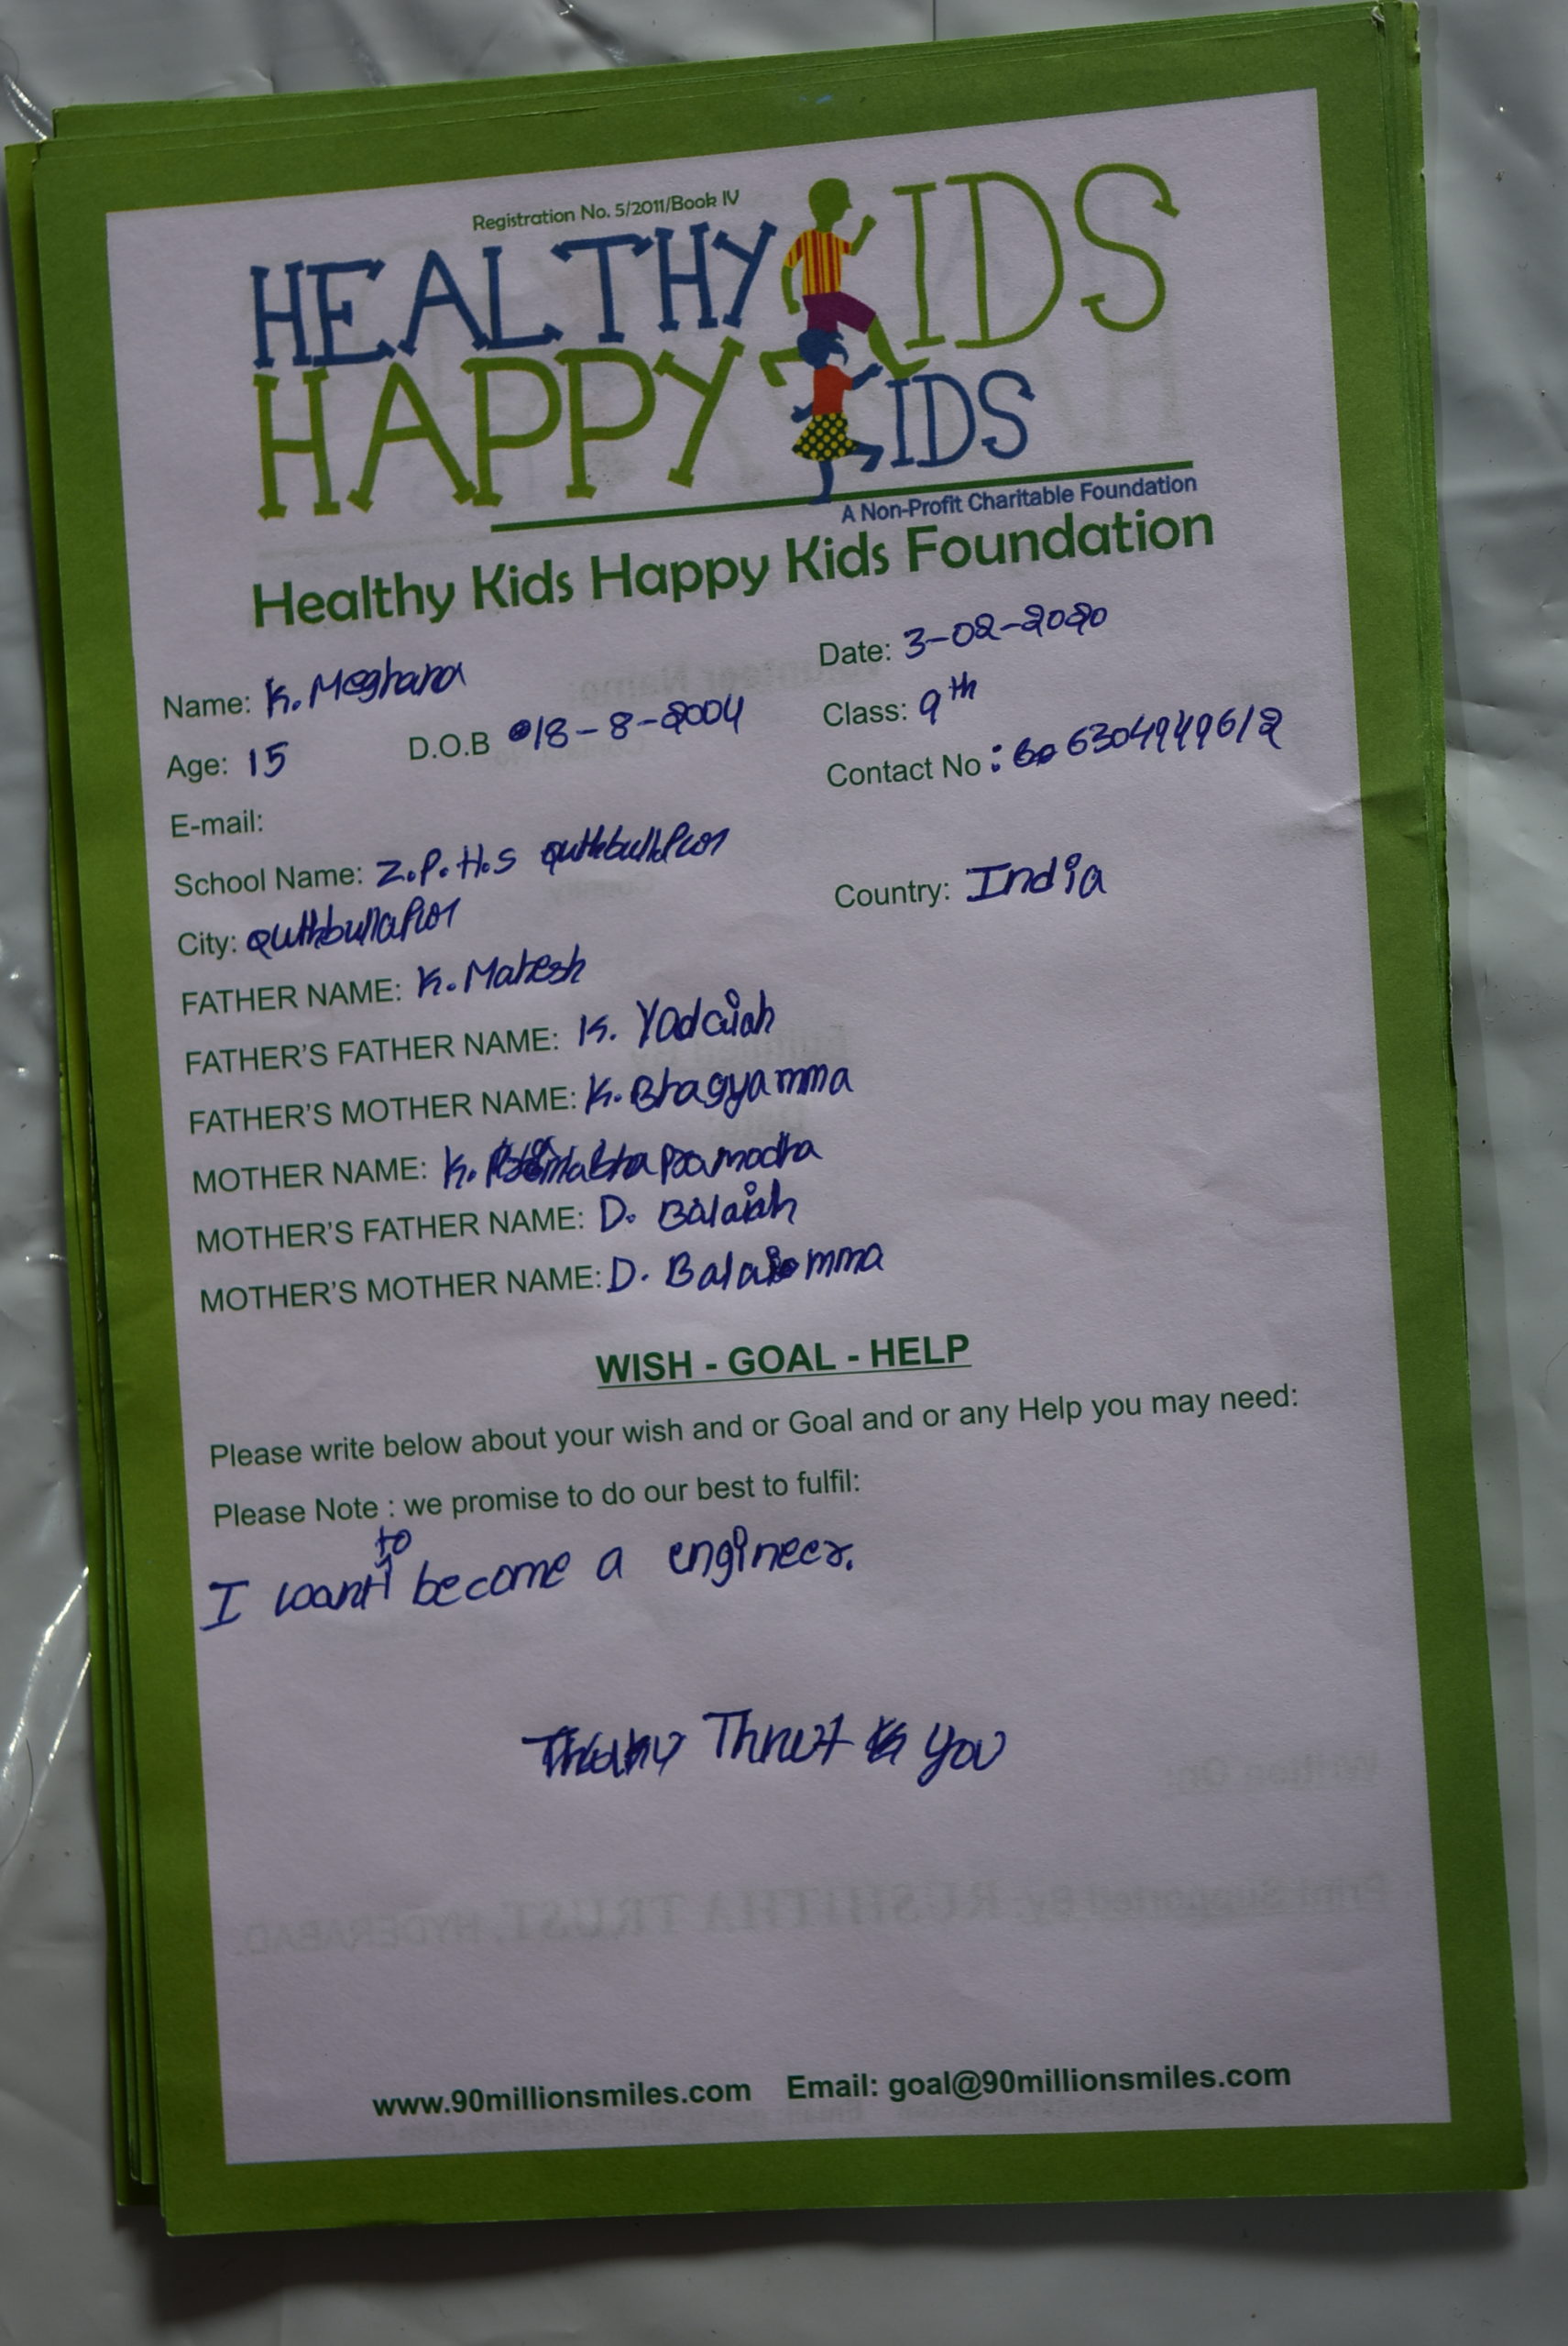 Registration No. 5/2011/Book IV
HEALTHY KIDS
HAPPY KIDS
A Non-Profit Charitable Foundation
Healthy Kids Happy Kids Foundation
Name: K. Meghana
Date: 3-02-2020
Age: 15 D.O.B 18-8-2004
Class: 9th
Contact No : 6304949612
E-mail:
School Name: Z.P.H.S
City:
Country: India
FATHER NAME: K. Mahesh
FATHER'S FATHER NAME: K. Yadaiah
FATHER'S MOTHER NAME: K. Bhagyamma
MOTHER NAME: K. Pramodha
MOTHER'S FATHER NAME: D. Balaiah
MOTHER'S MOTHER NAME: D.
WISH - GOAL - HELP
Please write below about your wish and or Goal and or any Help you may need:
Please Note : we promise to do our best to fulfil:
I want to become a engineer.
You
www.90millionsmiles.com Email: goal@90millionsmiles.com